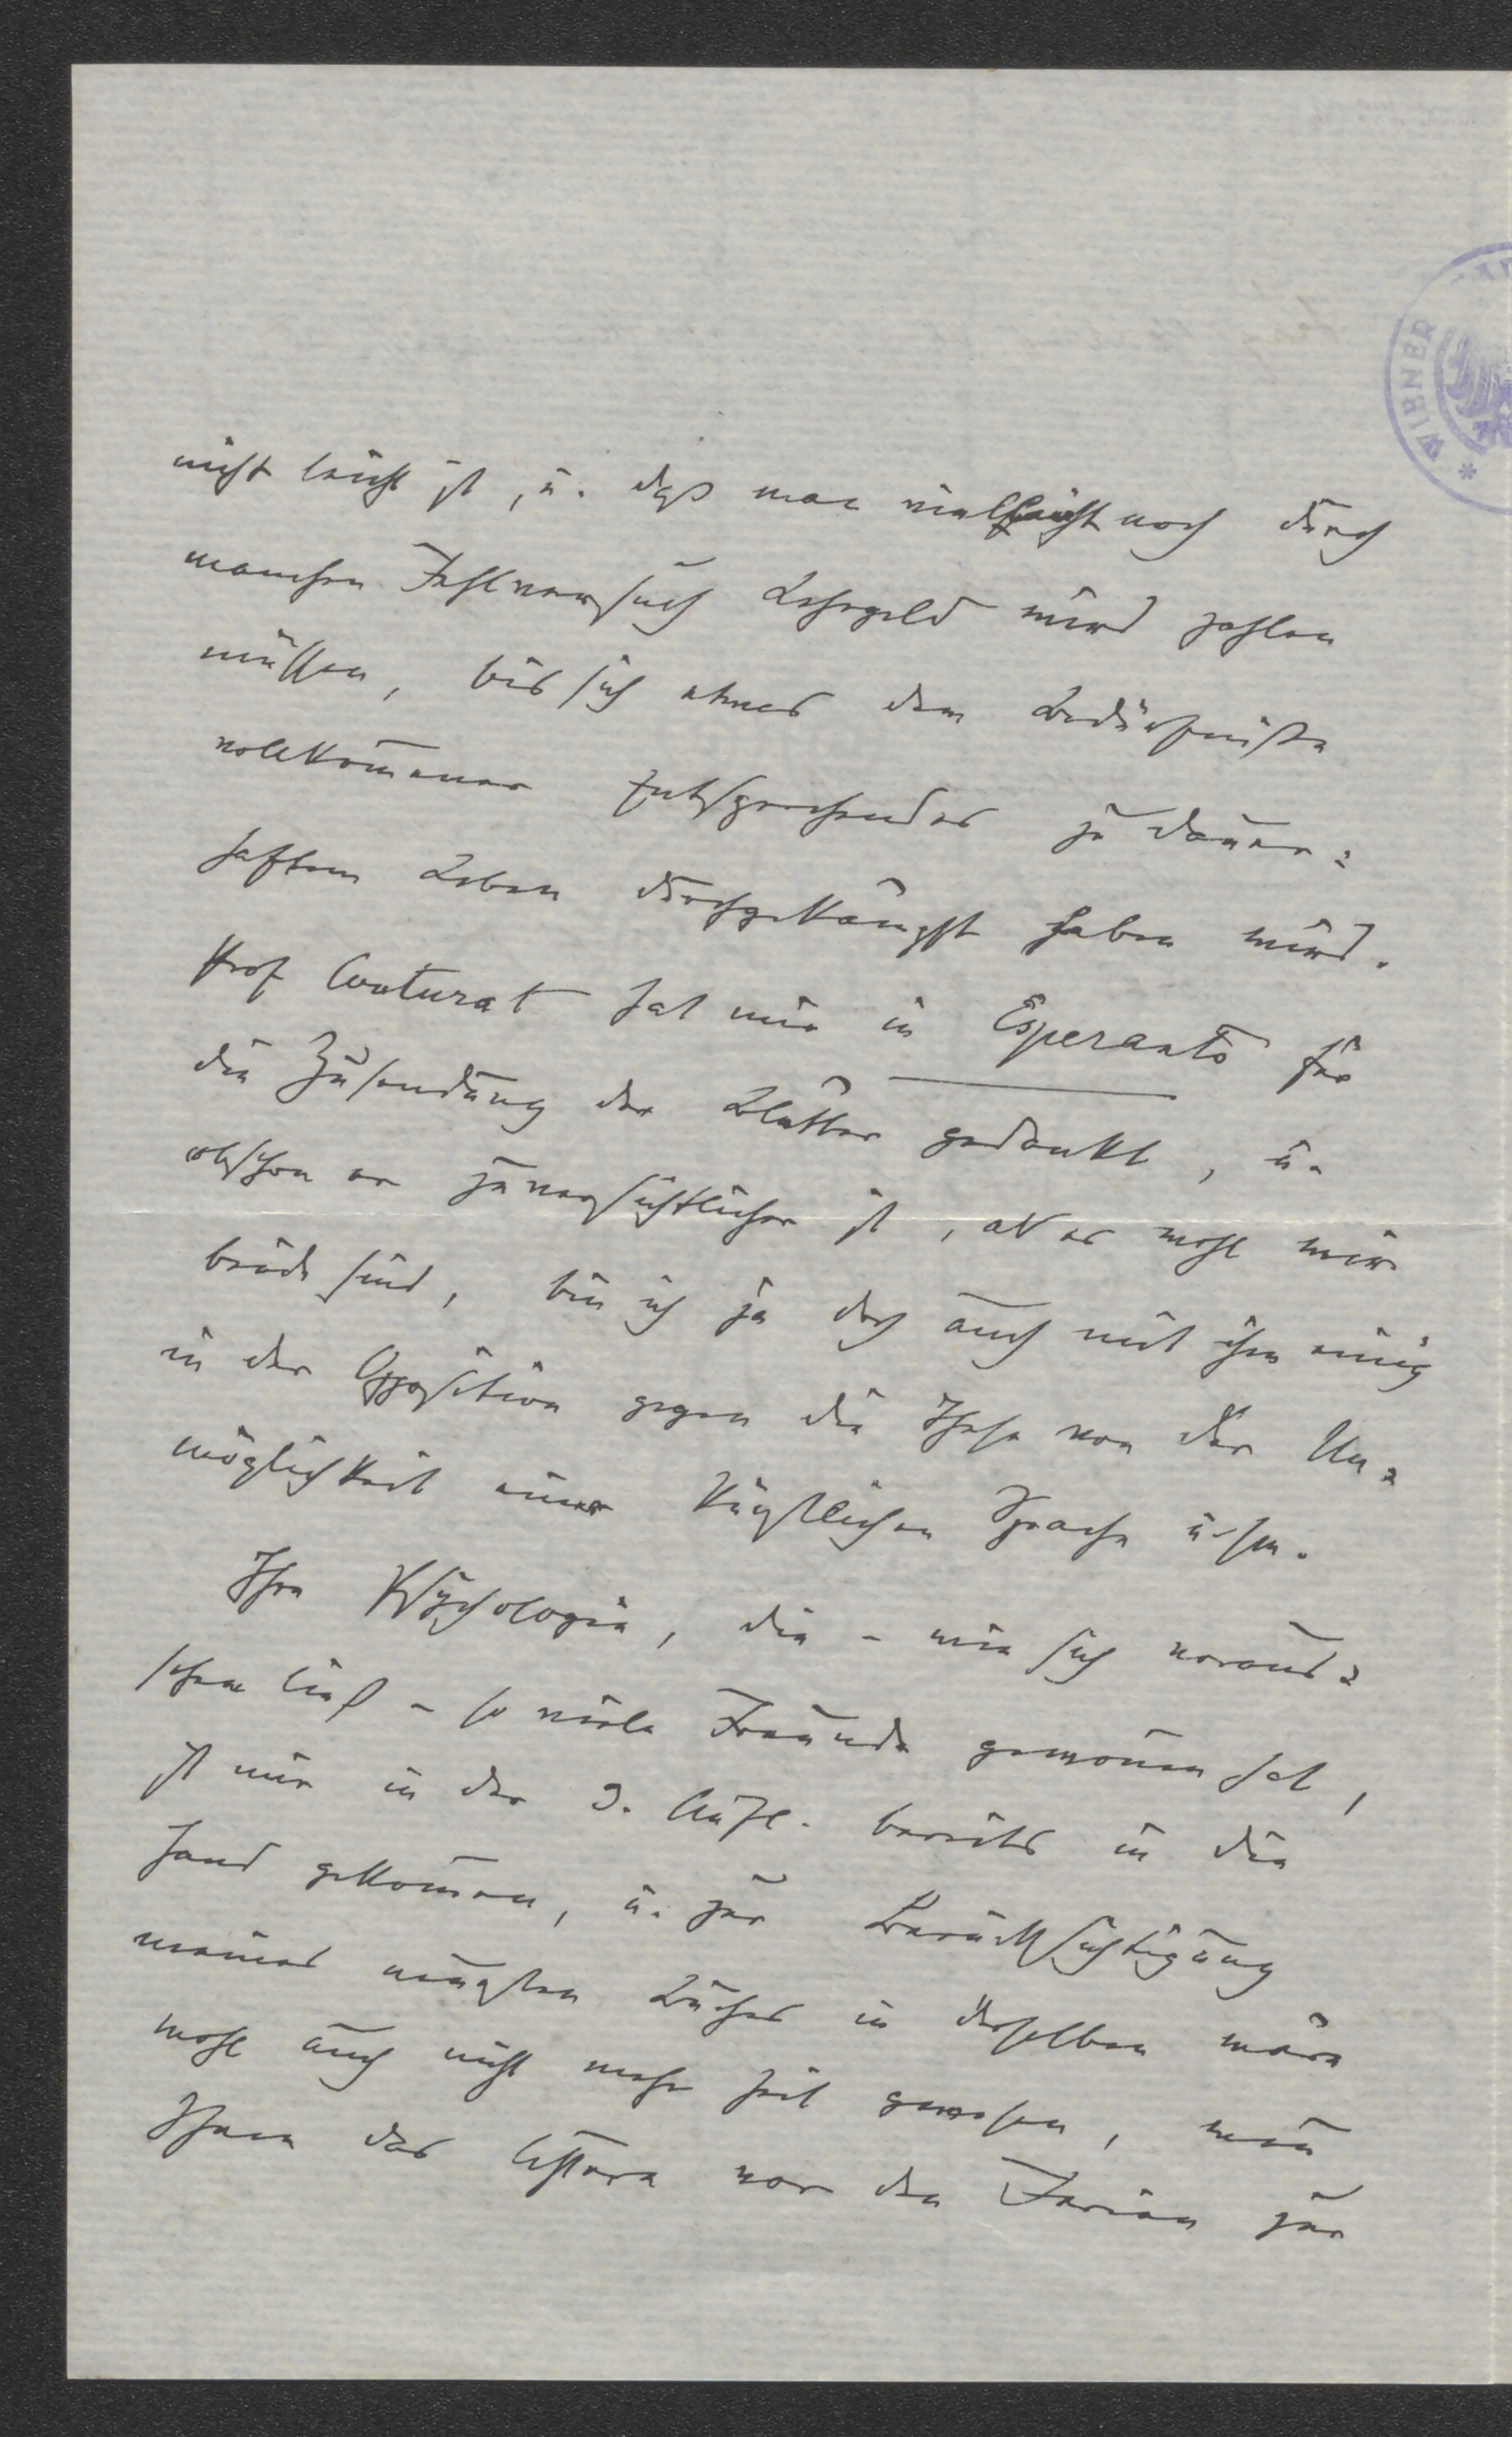 nicht leicht ist, u. daß man vielleicht noch durch
manchen Fehlversuch Lehrgeld wird zahlen
müssen, bis sich etwas dem Bedürfnisse
vollkommener Entsprechendes zu dauer=
haftem Leben durchgekämpft haben wird.
Prof Couturat hat mir in Esperanto für
die Zusendung der Blätter gedankt, u.
obschon er zuversichtlicher ist, als es wohl wir
beide sind, bin ich ja doch auch mit ihm einig
in der Opposition gegen die These von der Un=
möglichkeit einer künstlichen Sprache usw.
Ihre Psychologie, die – wie sich voraus=
sehen ließ – so viele Freunde gewonnen hat,
ist mir in der 3. Aufl. bereits in die
Hand gekommen, u. zur Berücksichtigung
meines neuesten Buches in derselben wäre
wohl auch nicht mehr Zeit gewesen, wenn
Ihnen das letztere vor den Ferien zur
WIENER